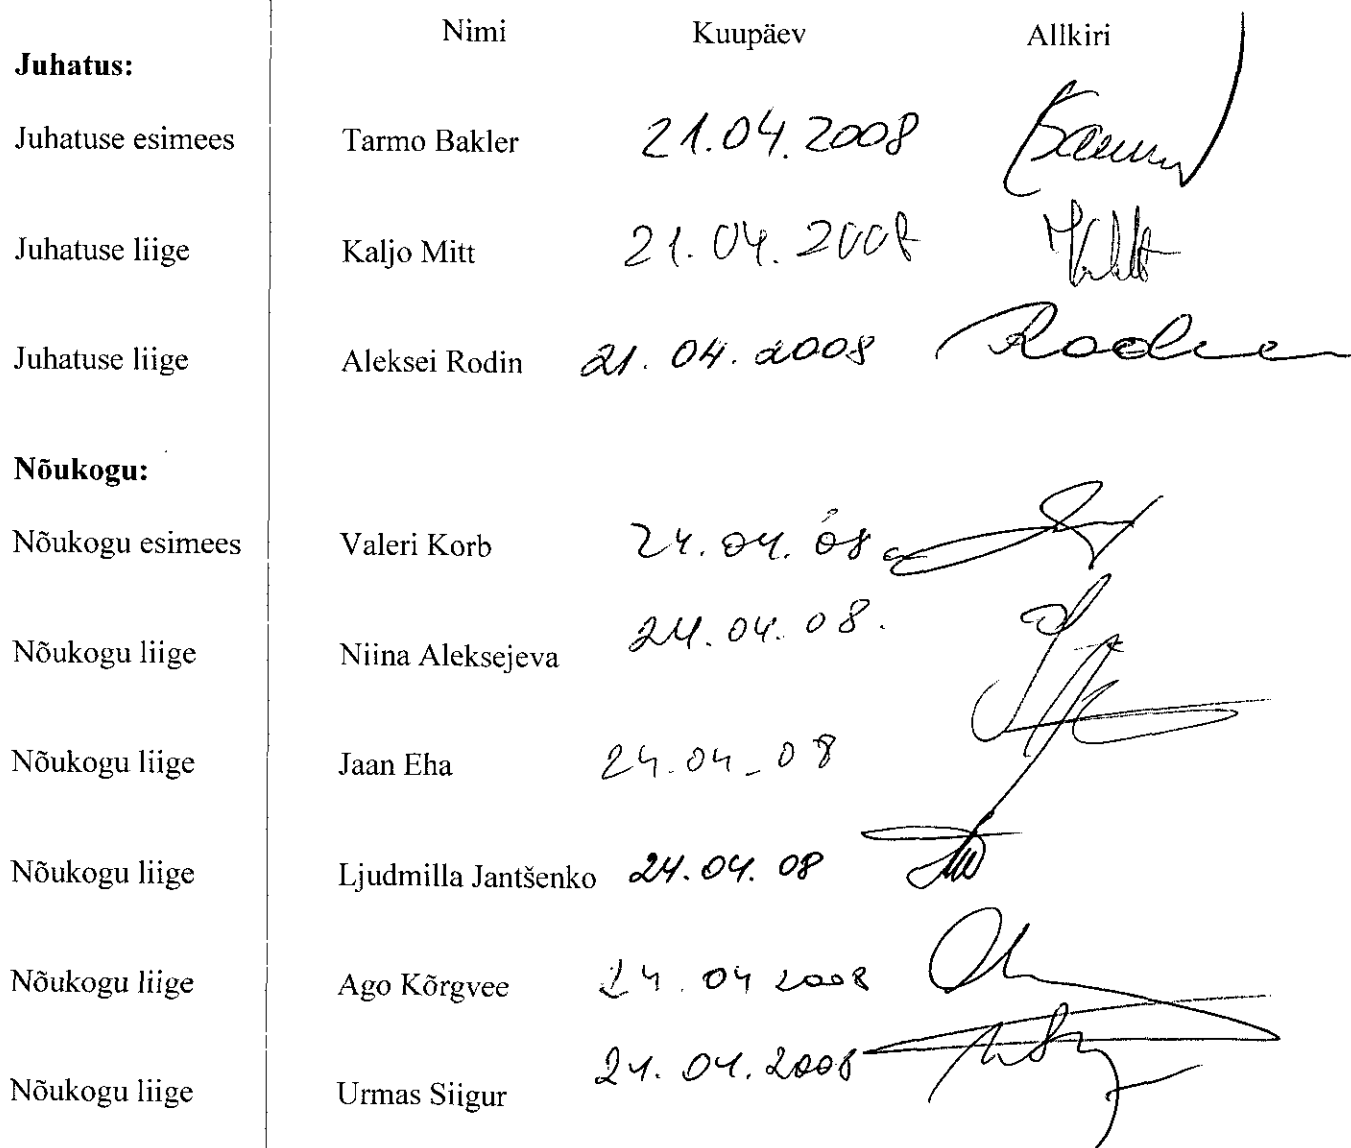 Nimi Kuupäev Allkiri
Juhatus:
Juhatuse esimees Tarmo Bakler 21.04.2008
Juhatuse liige Kaljo Mitt 21.04.2008
Juhatuse liige Aleksei Rodin 21.04.2008 Rodin
Nõukogu:
Nõukogu esimees Valeri Korb 24.04.08.
Nõukogu liige Niina Aleksejeva 24.04.08.
Nõukogu liige Jaan Eha 24.04-08
Nõukogu liige Ljudmilla Jantšenko 24.04.08
Nõukogu liige Ago Kõrgvee 24.04 2008
Nõukogu liige Urmas Siigur 24.04.2008